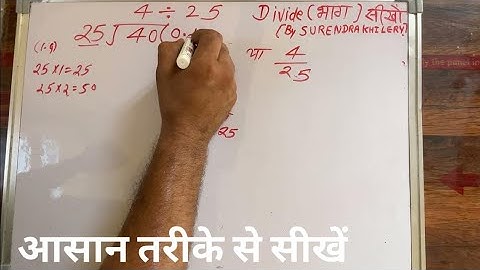 4 ÷ 25 Divide (भाग) सीखो
(By SURENDRA KHILERY)
25) 40 (0.
(1-9)
25×1=25
25×2=50
या 4/25
25
आसान तरीके से सीखें